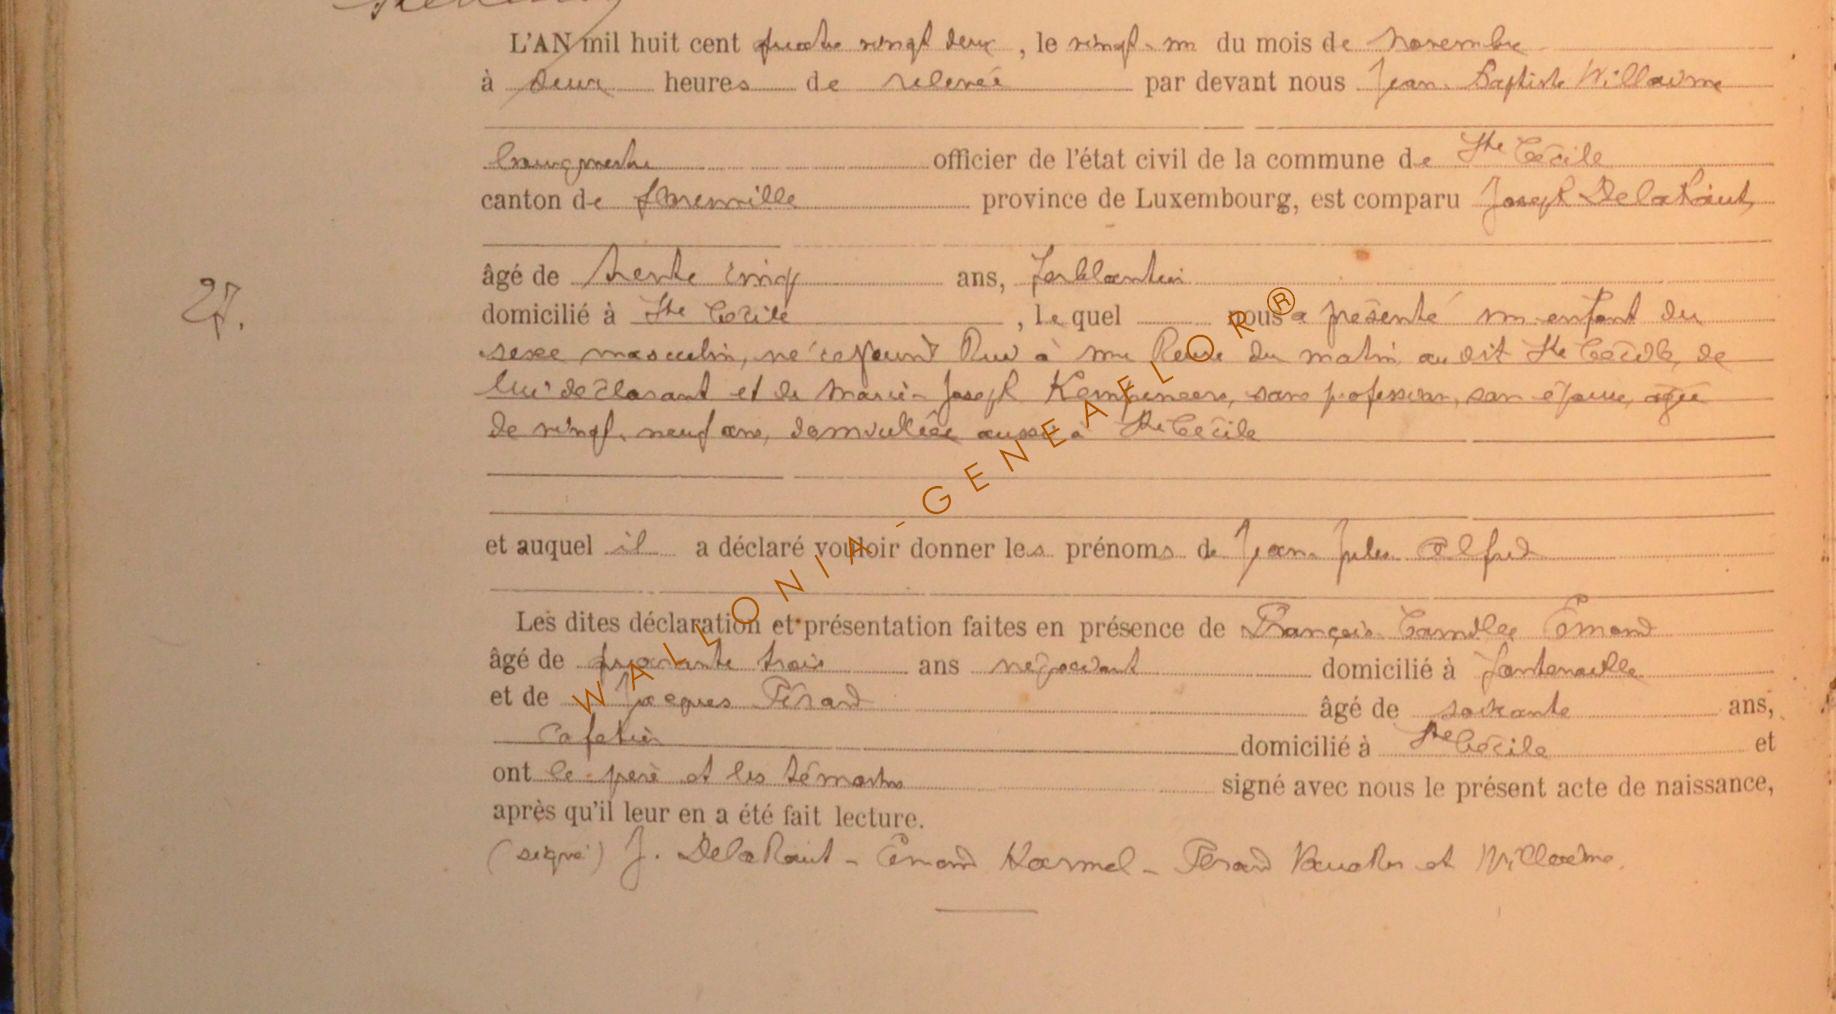 L'AN mil huit cent quatre vingt deux, le vingt-un du mois de novembre
à deux heures de relevée par devant nous Jean-Baptiste Willaime
bourgmestre officier de l'état civil de la commune de Ste Cécile
canton de florenville province de Luxembourg, est comparu Joseph Delahaut
27.
âgé de trente cinq ans, ferblantier
domicilié à Ste Cécile, le quel nous a présenté un enfant du
sexe masculin, né ce jourd'hui à une heure du matin au dit Ste Cécile, de
lui déclarant et de Marie-Joseph Kempeneers, sans profession, son épouse, agée
de vingt-neuf ans, domiciliée aussi à Ste Cécile
et auquel il a déclaré vouloir donner les prénoms de Jean Jules Alfred
Les dites déclaration et présentation faites en présence de François Camille Emond
âgé de quarante trois ans négociant domicilié à fontenoille
et de Jacques Pérard âgé de soixante ans,
Cafetier domicilié à Ste Cécile et
ont le père et les témoins signé avec nous le présent acte de naissance,
après qu'il leur en a été fait lecture.
(signé) J. Delahaut - Emond - Pérard et Willaime.
WALLONIA-GENEAFLOR®